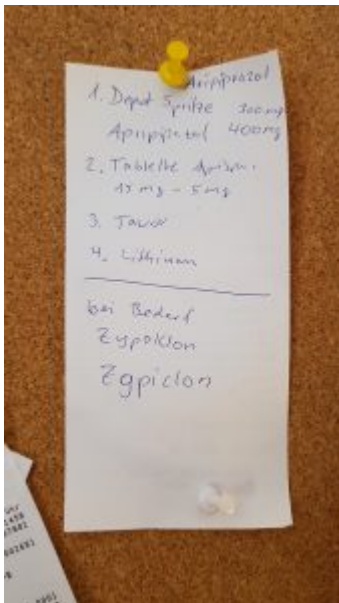 Aripiprazol
1. Depot Spritze 300mg
Apripipratol 400mg
2. Tablette
15 mg - 5mg
3. Tavor
4. Lithium
bei Bedarf
Zypoklon
Zgpiclon